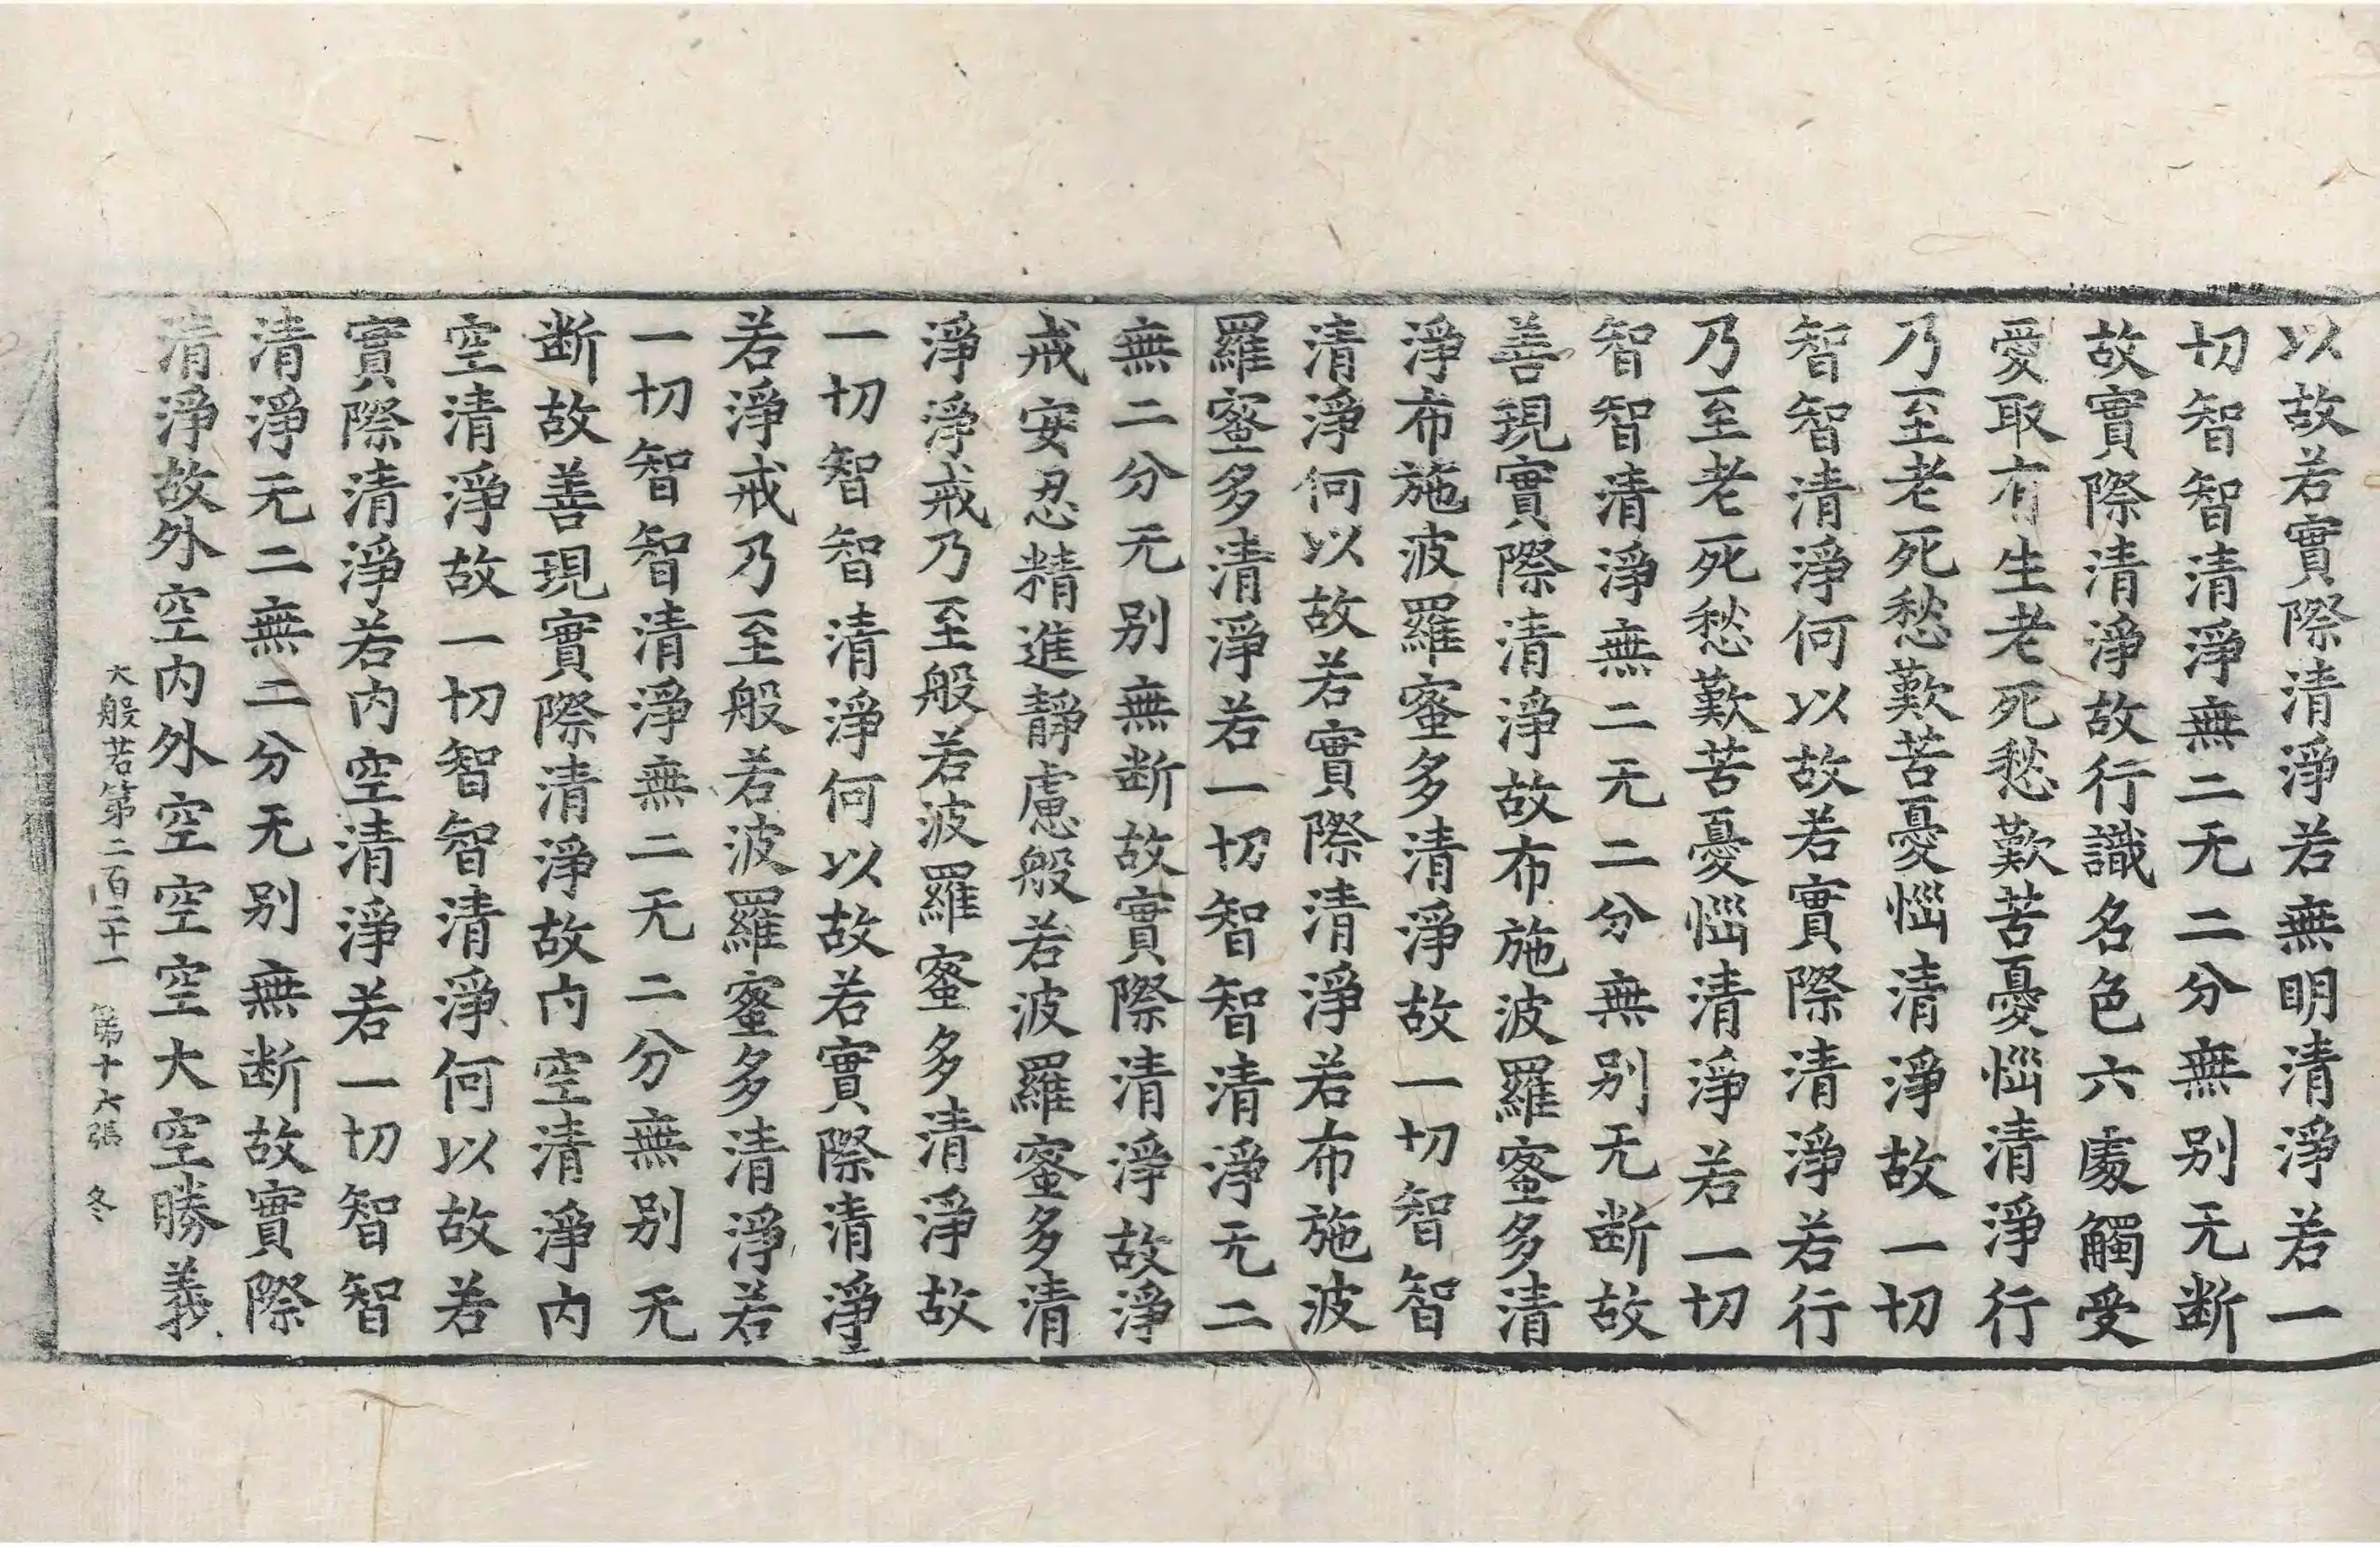 以故若實際清淨若無明清淨若一
切智智清淨無二无二分無别无断
故實際清淨故行識名色六處觸受
愛取有生老死愁歎苦憂惱清淨行
乃至老死愁歎苦憂惱清淨故一切
智智清淨何以故若實際清淨若行
乃至老死愁歎苦憂惱清淨若一切
智智清淨無二无二分無别无断故
善現實際清淨故布施波羅蜜多清
淨布施波羅蜜多清淨故一切智智
清淨何以故若實際清淨若布施波
羅蜜多清淨若一切智智清淨无二
無二分无别無断故實際清淨故淨
戒安忍精進靜慮般若波羅蜜多清
淨淨戒乃至般若波羅蜜多清淨故
一切智智清淨何以故若實際清淨
若淨戒乃至般若波羅蜜多清淨若
一切智智清淨無二无二分無别无
断故善現實際清淨故内空清淨内
空清淨故一切智智清淨何以故若
實際清淨若内空清淨若一切智智
清淨无二無二分无别無断故實際
清淨故外空内外空空空大空勝義
大般若第二百二十一 第十六張 冬